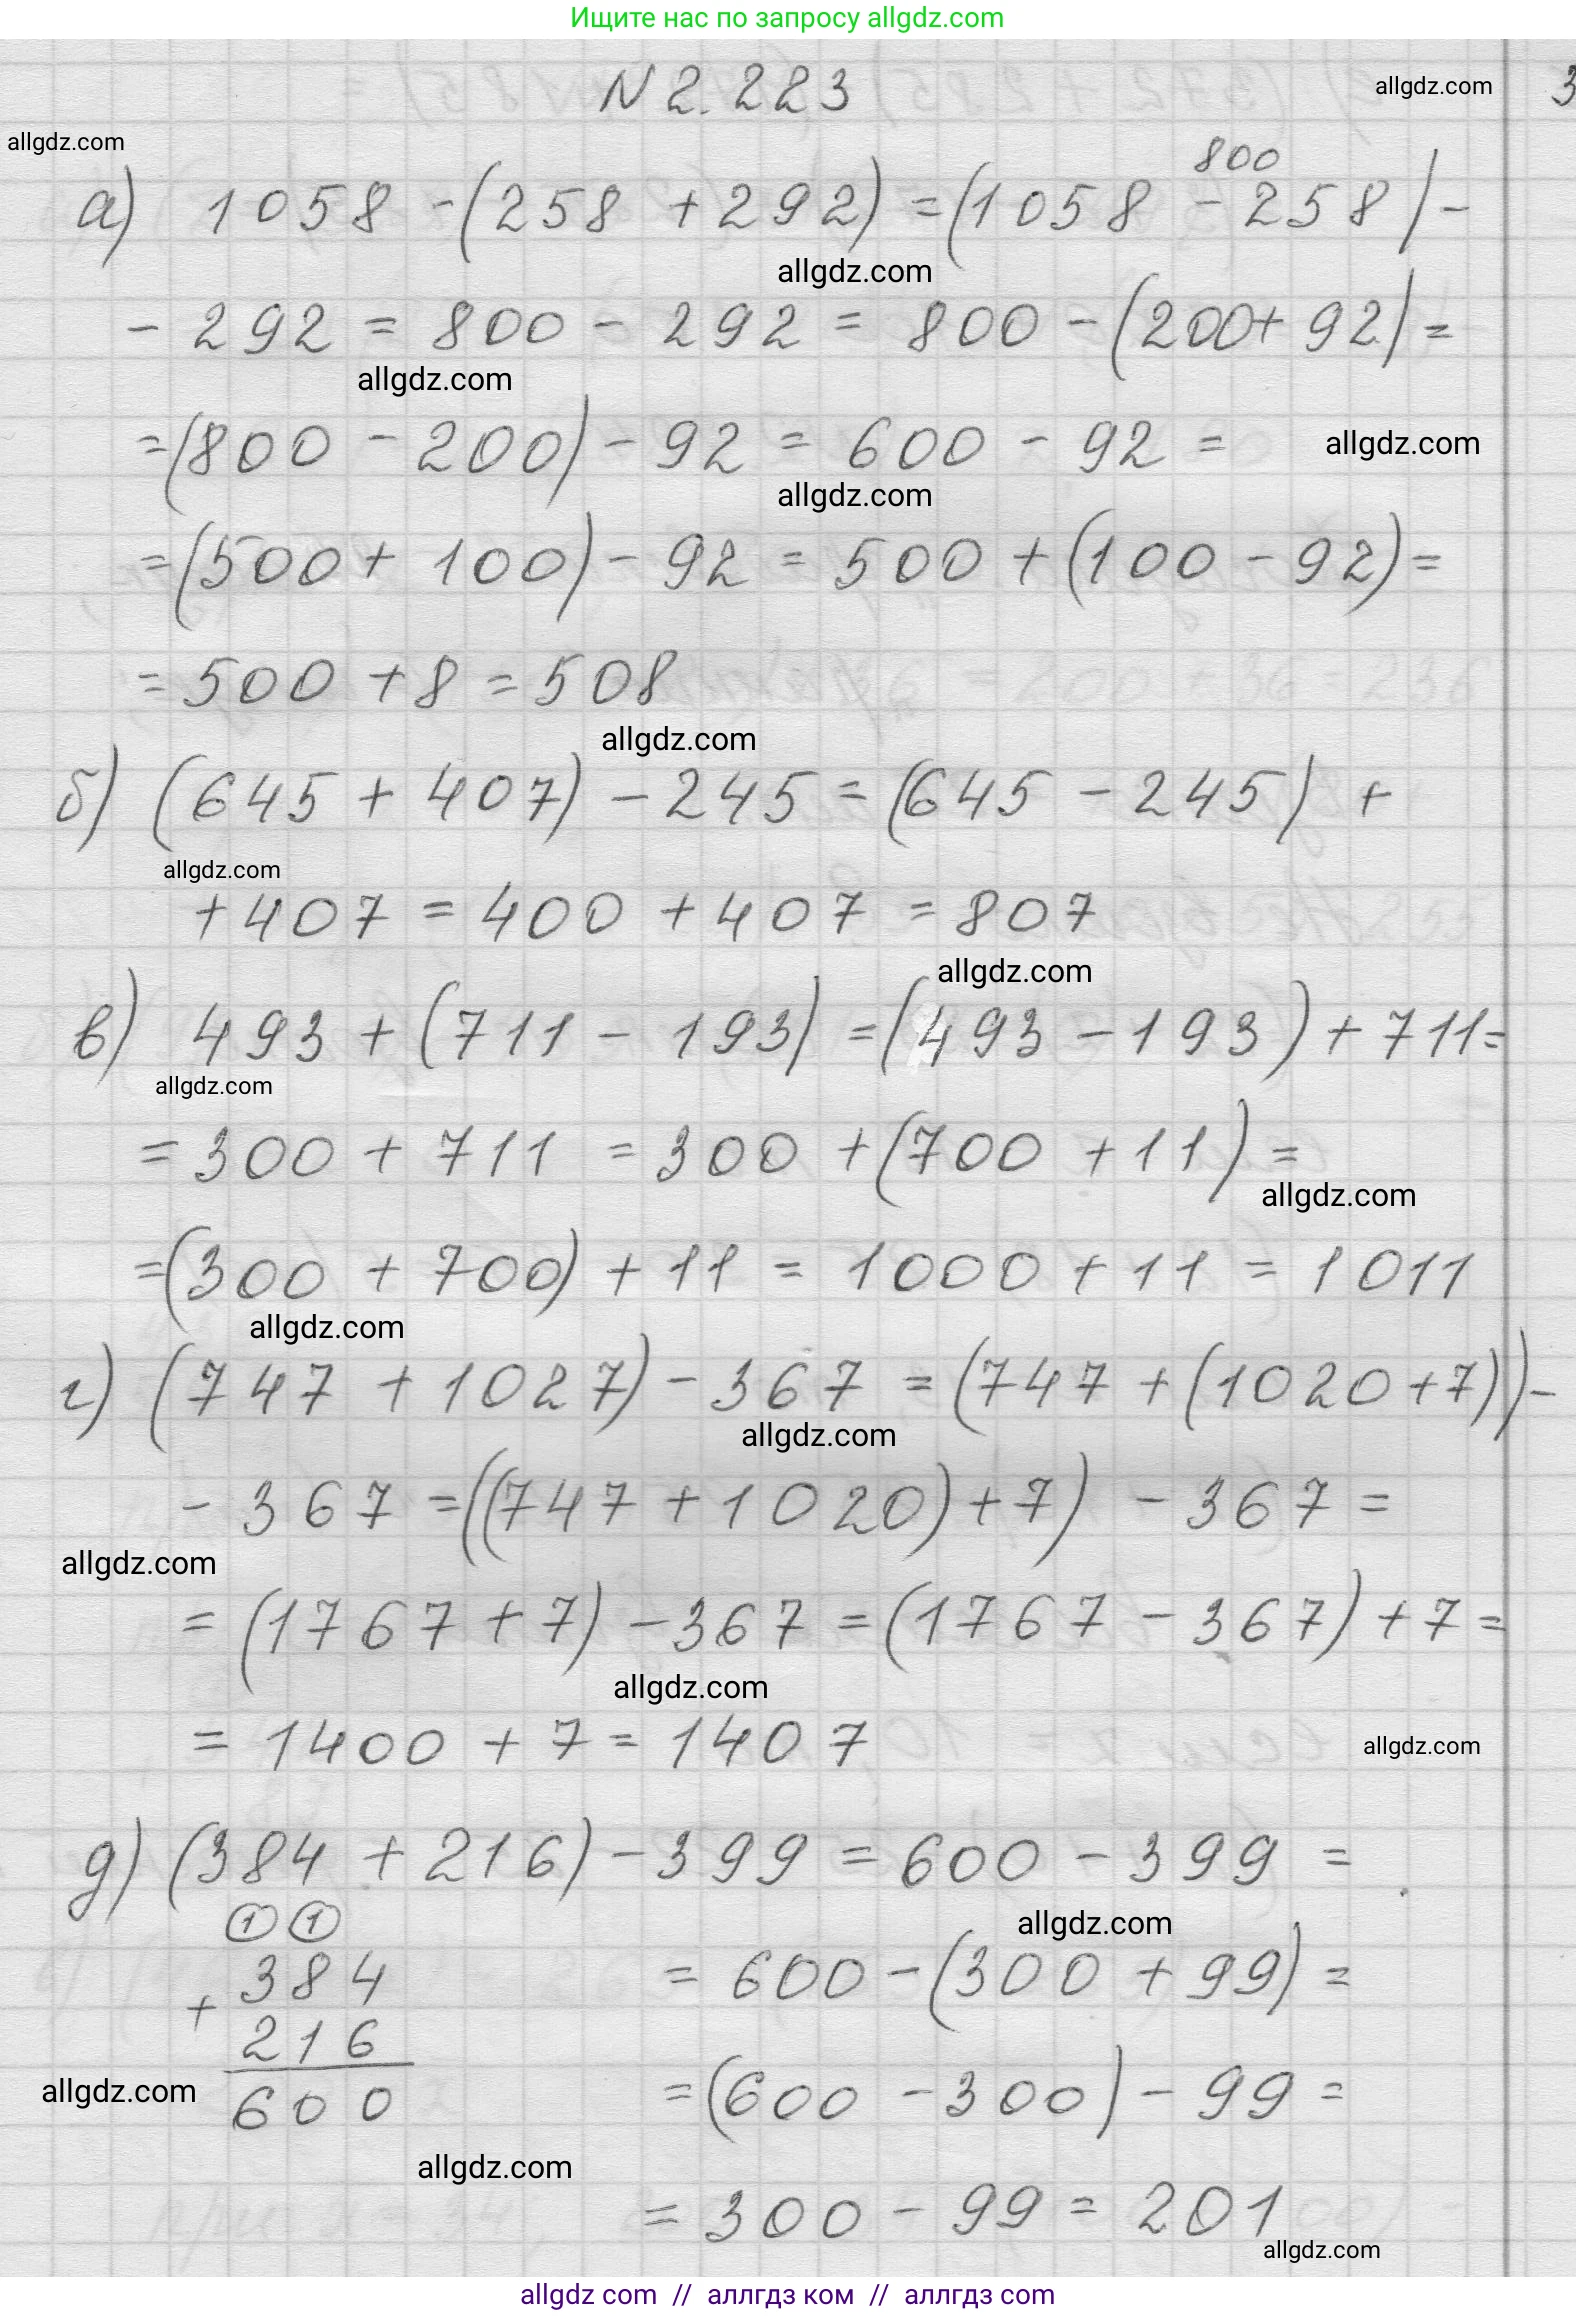 Ищите нас по запросу allgdz.com
N 2.223
allgdz.com
3
allgdz.com
800
а) 1058 - (258 + 292) = (1058 - 258) -
allgdz.com
- 292 = 800 - 292 = 800 - (200 + 92) =
allgdz.com
= (800 - 200) - 92 = 600 - 92 =
allgdz.com
allgdz.com
= (500 + 100) - 92 = 500 + (100 - 92) =
= 500 + 8 = 508
allgdz.com
б) (645 + 407) - 245 = (645 - 245) +
allgdz.com
+ 407 = 400 + 407 = 807
allgdz.com
в) 493 + (711 - 193) = (493 - 193) + 711 =
allgdz.com
= 300 + 711 = 300 + (700 + 11) =
allgdz.com
= (300 + 700) + 11 = 1000 + 11 = 1011
allgdz.com
г) (747 + 1027) - 367 = (747 + (1020 + 7)) -
allgdz.com
- 367 = ((747 + 1020) + 7) - 367 =
allgdz.com
= (1767 + 7) - 367 = (1767 - 367) + 7 =
allgdz.com
= 1400 + 7 = 1407
allgdz.com
д) (384 + 216) - 399 = 600 - 399 =
1 1
allgdz.com
384
= 600 - (300 + 99) =
+
216
allgdz.com
600
= (600 - 300) - 99 =
allgdz.com
= 300 - 99 = 201
allgdz.com
allgdz com // аллгдз ком // аллгдз com